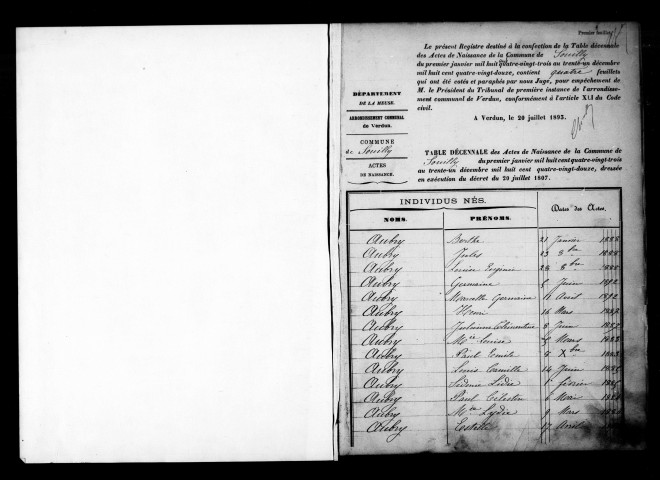 Premier feuillet
Le présent Registre destiné à la confection de la Table décennale
des Actes de Naissance de la Commune de Souilly
du premier janvier mil huit cent quatre-vingt-trois au trente-un décembre
mil huit cent quatre-vingt-douze, contient quatre feuillets
qui ont été cotés et paraphés par nous Juge, pour empêchement de
M. le Président du Tribunal de première instance de l'arrondissement
communal de Verdun, conformément à l'article XLI du Code
civil.
A Verdun, le 20 juillet 1893.
DÉPARTEMENT
DE LA MEUSE.
ARRONDISSEMENT COMMUNAL
de Verdun.
COMMUNE
de Souilly
ACTES
DE NAISSANCE.
TABLE DÉCENNALE des Actes de Naissance de la Commune de
Souilly du premier janvier mil huit cent quatre-vingt-trois
au trente-un décembre mil huit cent quatre-vingt-douze, dressée
en exécution du décret du 20 juillet 1807.
INDIVIDUS NÉS.
NOMS. PRÉNOMS. Dates des Actes.
Aubry Berthe 21 Janvier
Aubry Jules 23 8bre
Aubry Louise Eugénie 28 8bre
Aubry Germaine 5 Juin 1892
Aubry Germaine Avril 1892
Aubry Henri 16 Mars
Aubry Clémentine 8 Juin
Aubry Mie Louise 5 Mars 1883
Aubry Paul Emile 8 Xbre 1883
Aubry Louis Camille 14 Juin 1885
Aubry Lidie 1 février
Aubry Paul Célestin 6
Aubry Lydie 9 Mars
Aubry 17 Avril